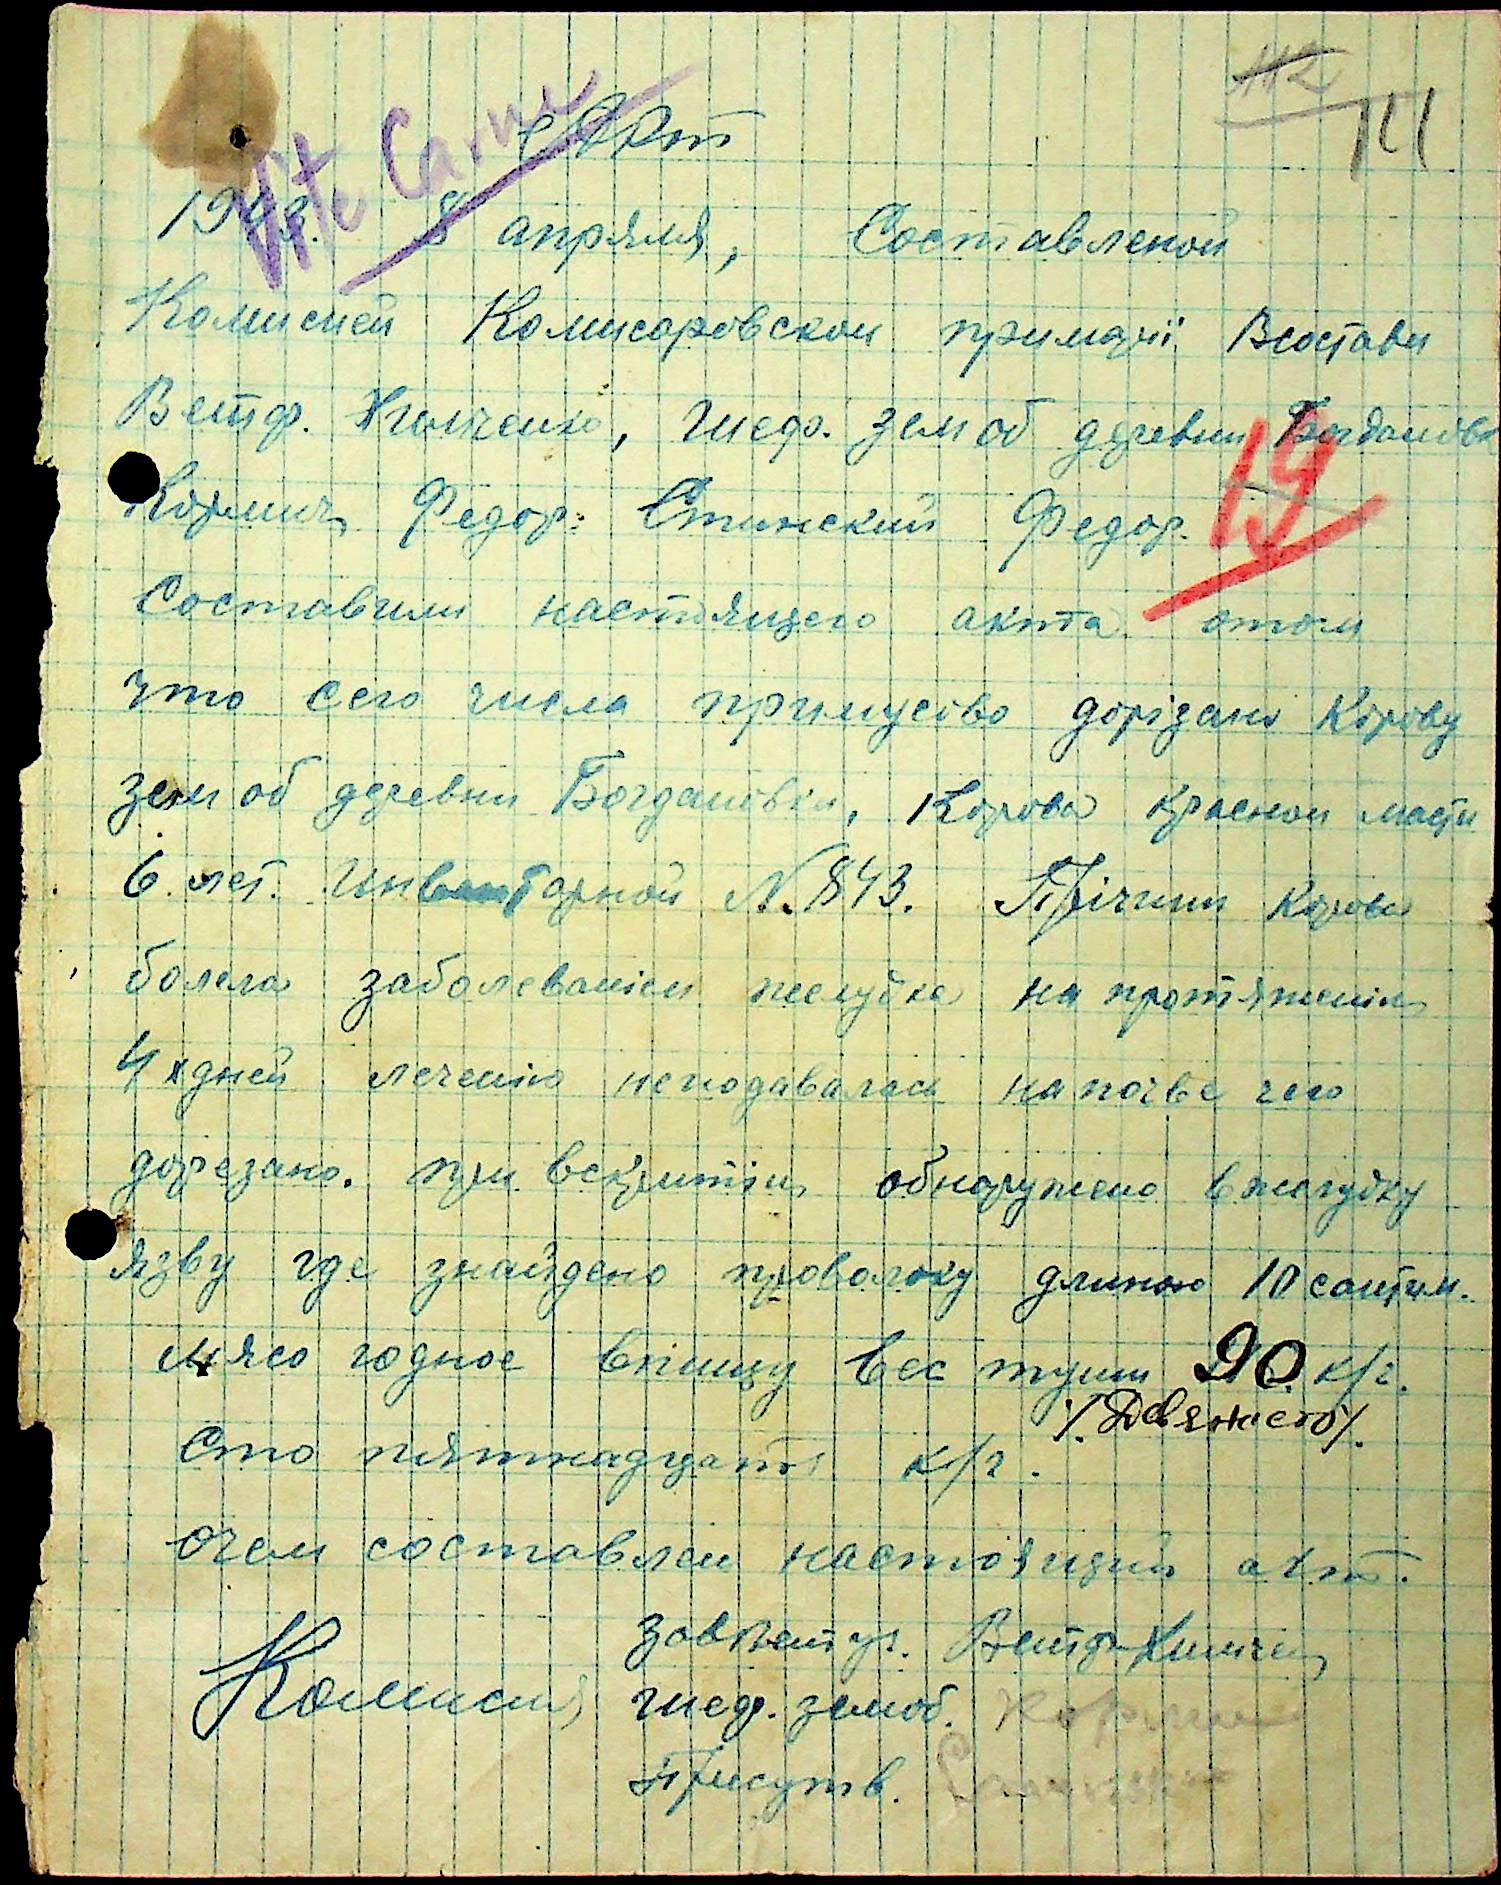 112
111
Vite Carne
Акт
1943. 8 апряля, Составленой
Комисией Комисаровской примарії Всостави
Ветф. Хилченко, Шеф. зем об деревни Богдановк
19
Кормич Федор. Стинский Федор.
Составили настоящего акта отом
что сего числа примусово дорізано Корову
зем об деревни Богдановки, Корова красной масти
6 лет. Инвентарной N. 843. Прічини Корова
болела заболеваніем желудка на протяженіи
4х дней лечению неподавалась на почве чего
дорезано. при вскритіи обнаружено вжелудку
язву где знайдено проволоку длиною 10 сантим.
мясо годное впищу вес туши 90 к/г.
/.Девяносто/.
Сто пятнадцать к/г.
очем составлен настоящий акт.
Комисия Зав Ветуч. Ветф Хилчен
Шеф. земоб. Корми
Присутв.